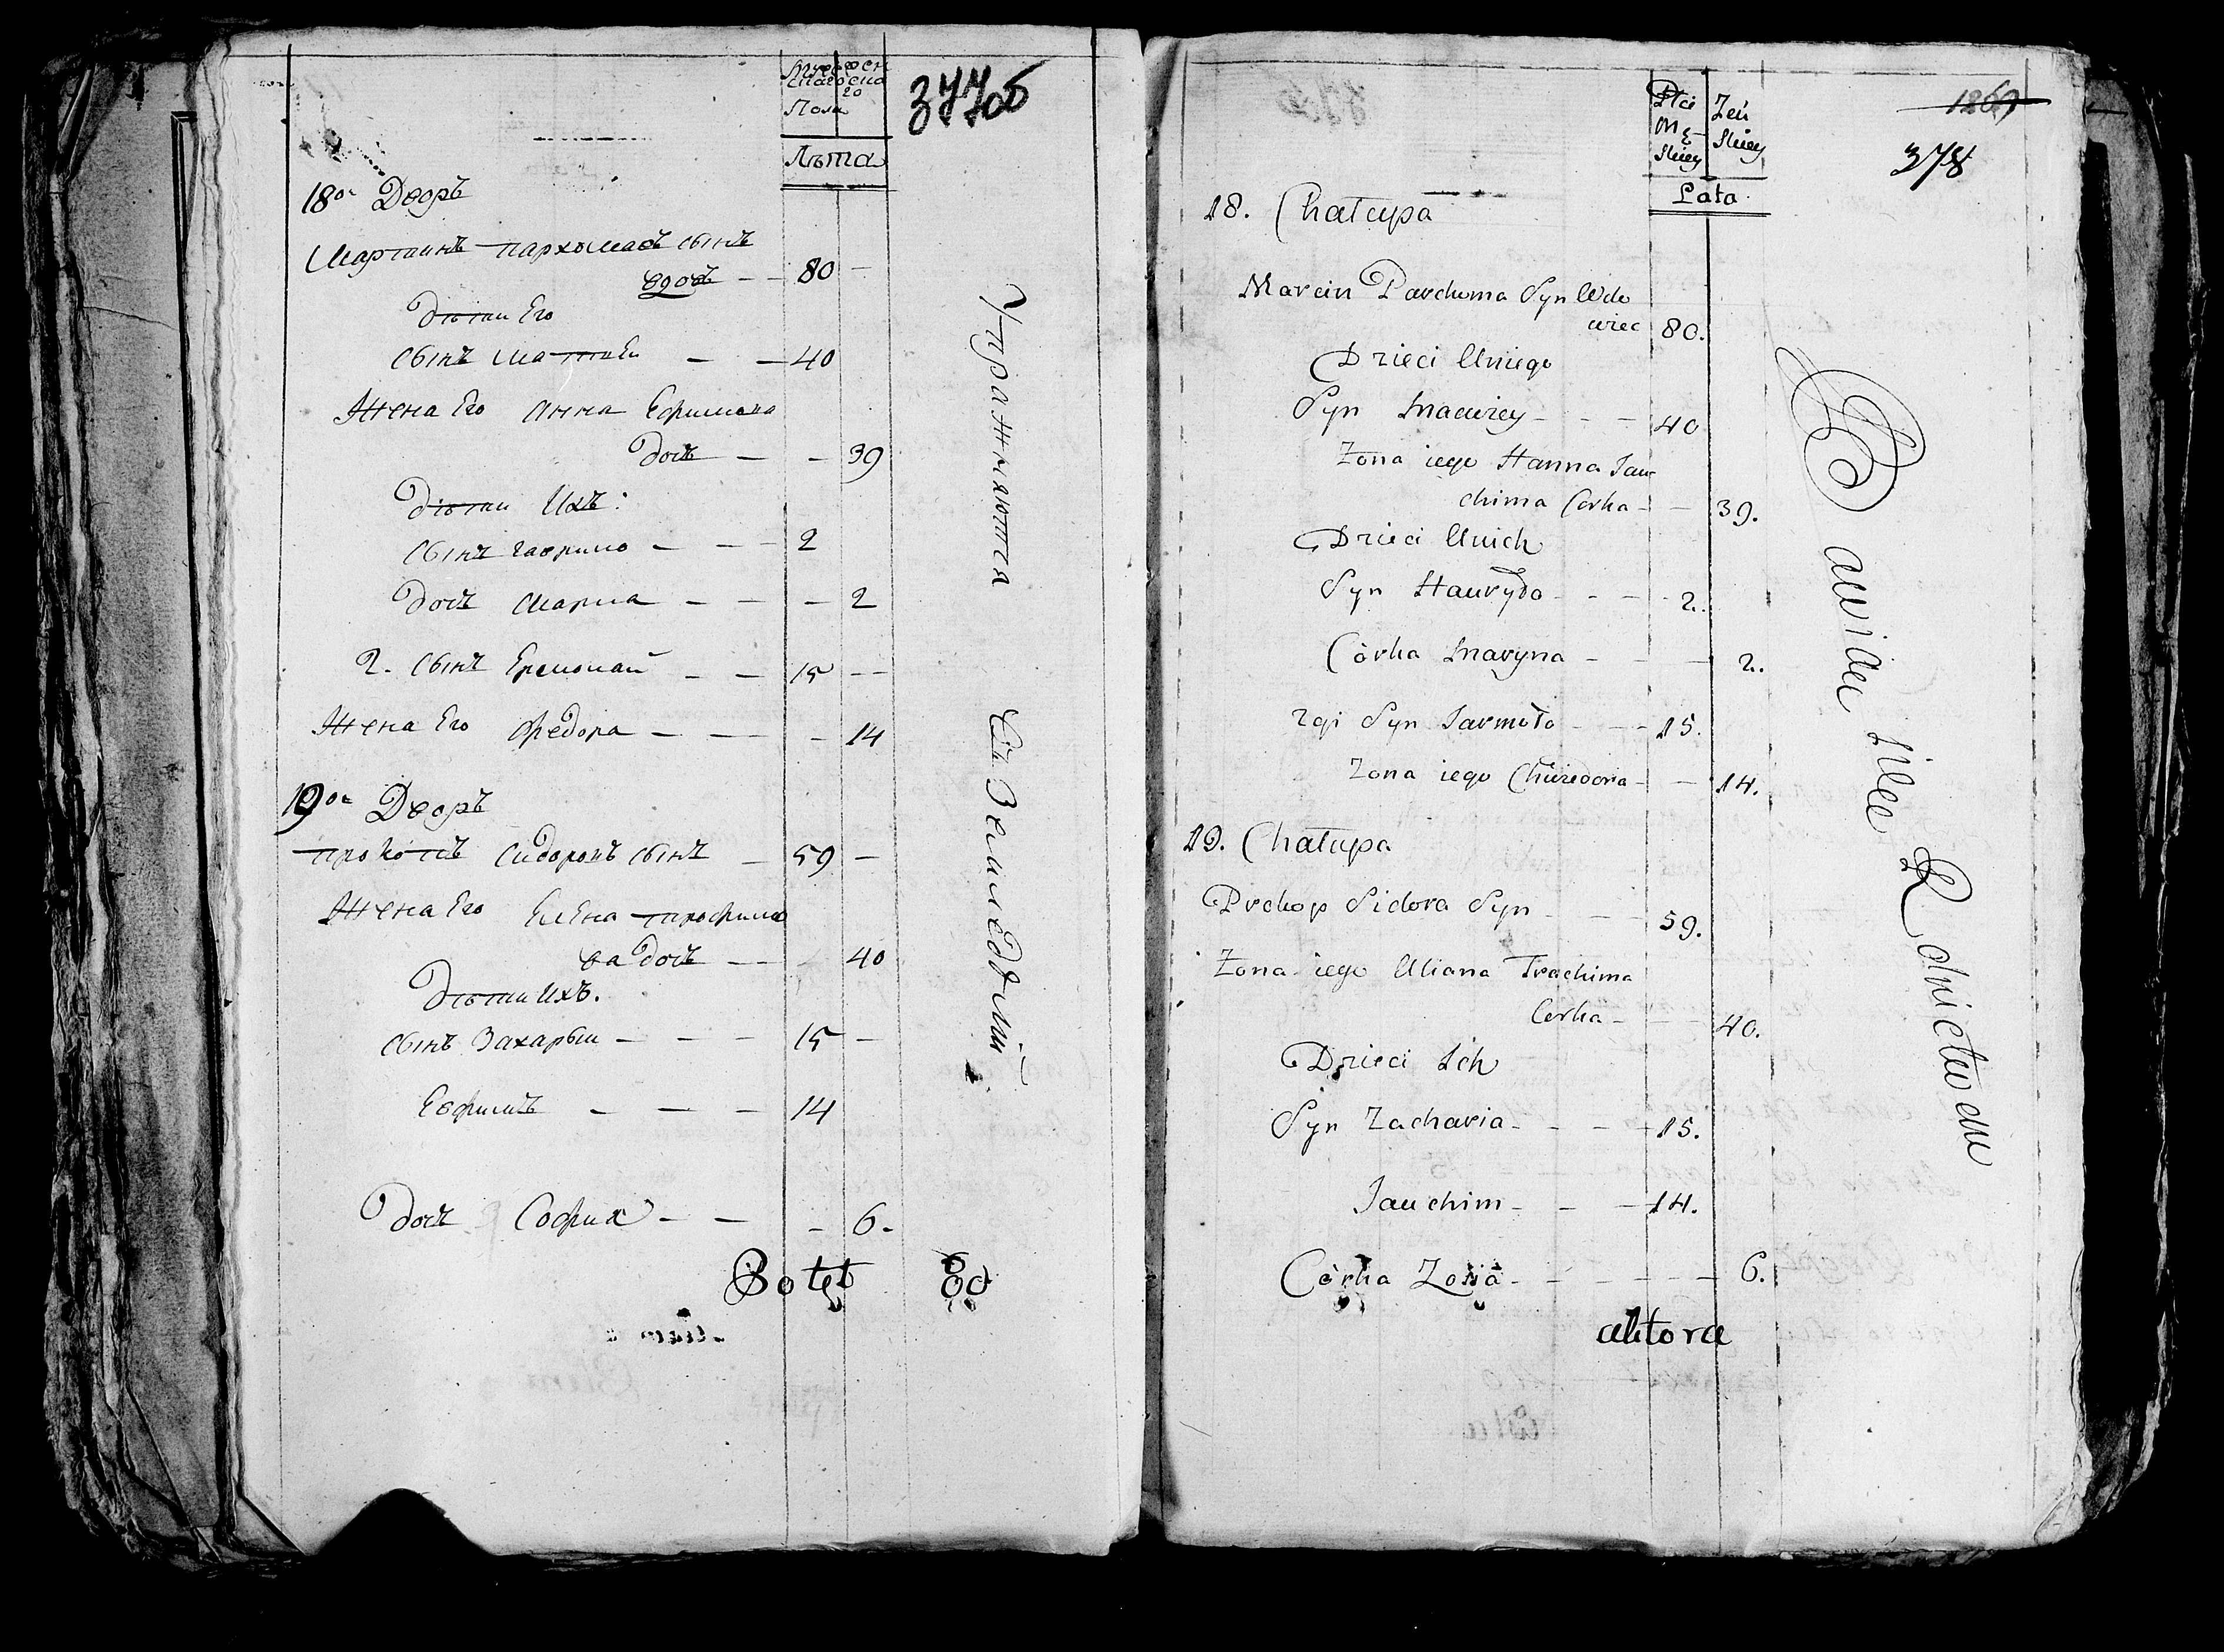 377об
Мужескаго
Женского
Пола
Лѣта
18ой Дворъ
Мартинъ пархомовъ сынъ
вдовъ — — 80 —
дѣти Его
сынъ матвей — — 40
Жена Его Анна Ефимова
дочь — — 39
дѣти Ихъ:
сынъ гаврило — — — 2
дочь Марина — — — 2
2. сынъ Ермолай — — 15 — —
Жена Его Федора — — — 14
19ой Дворъ
прокопъ сидоровъ сынъ — 59 —
Жена Его Елена трофимо
ва дочь — — 40
дѣти Ихъ.
сынъ Захарый — — — 15 —
Ефимъ — — — 14
дочь София — — — 6.
Упражняются
Земледѣлии
378
Płci
Mę-
skiey
Żeń
skiey
Lata
18. Chałupa
Marcin Parchoma Syn Wdo
wiec 80.
Dzieci Uniego
Syn Maciey - - - 40
Żona iego Hanna Jau
chima Corka - — 39.
Dzieci Unich
Syn Hauryło - - - 2.
Córka Maryna - - — 2.
2gi Syn Jarmoło - - - 15.
Żona iego Chwiedora - — 14.
19. Chałupa
Prokop Sidora Syn - - - 59.
Żona iego Uliana Trachima
Corka - — 40.
Dzieci Ich
Syn Zacharia - - - - 15.
Jauchim - - — 14.
Córka Zosia - - - - - — 6.
Bawian się Rolnictwem